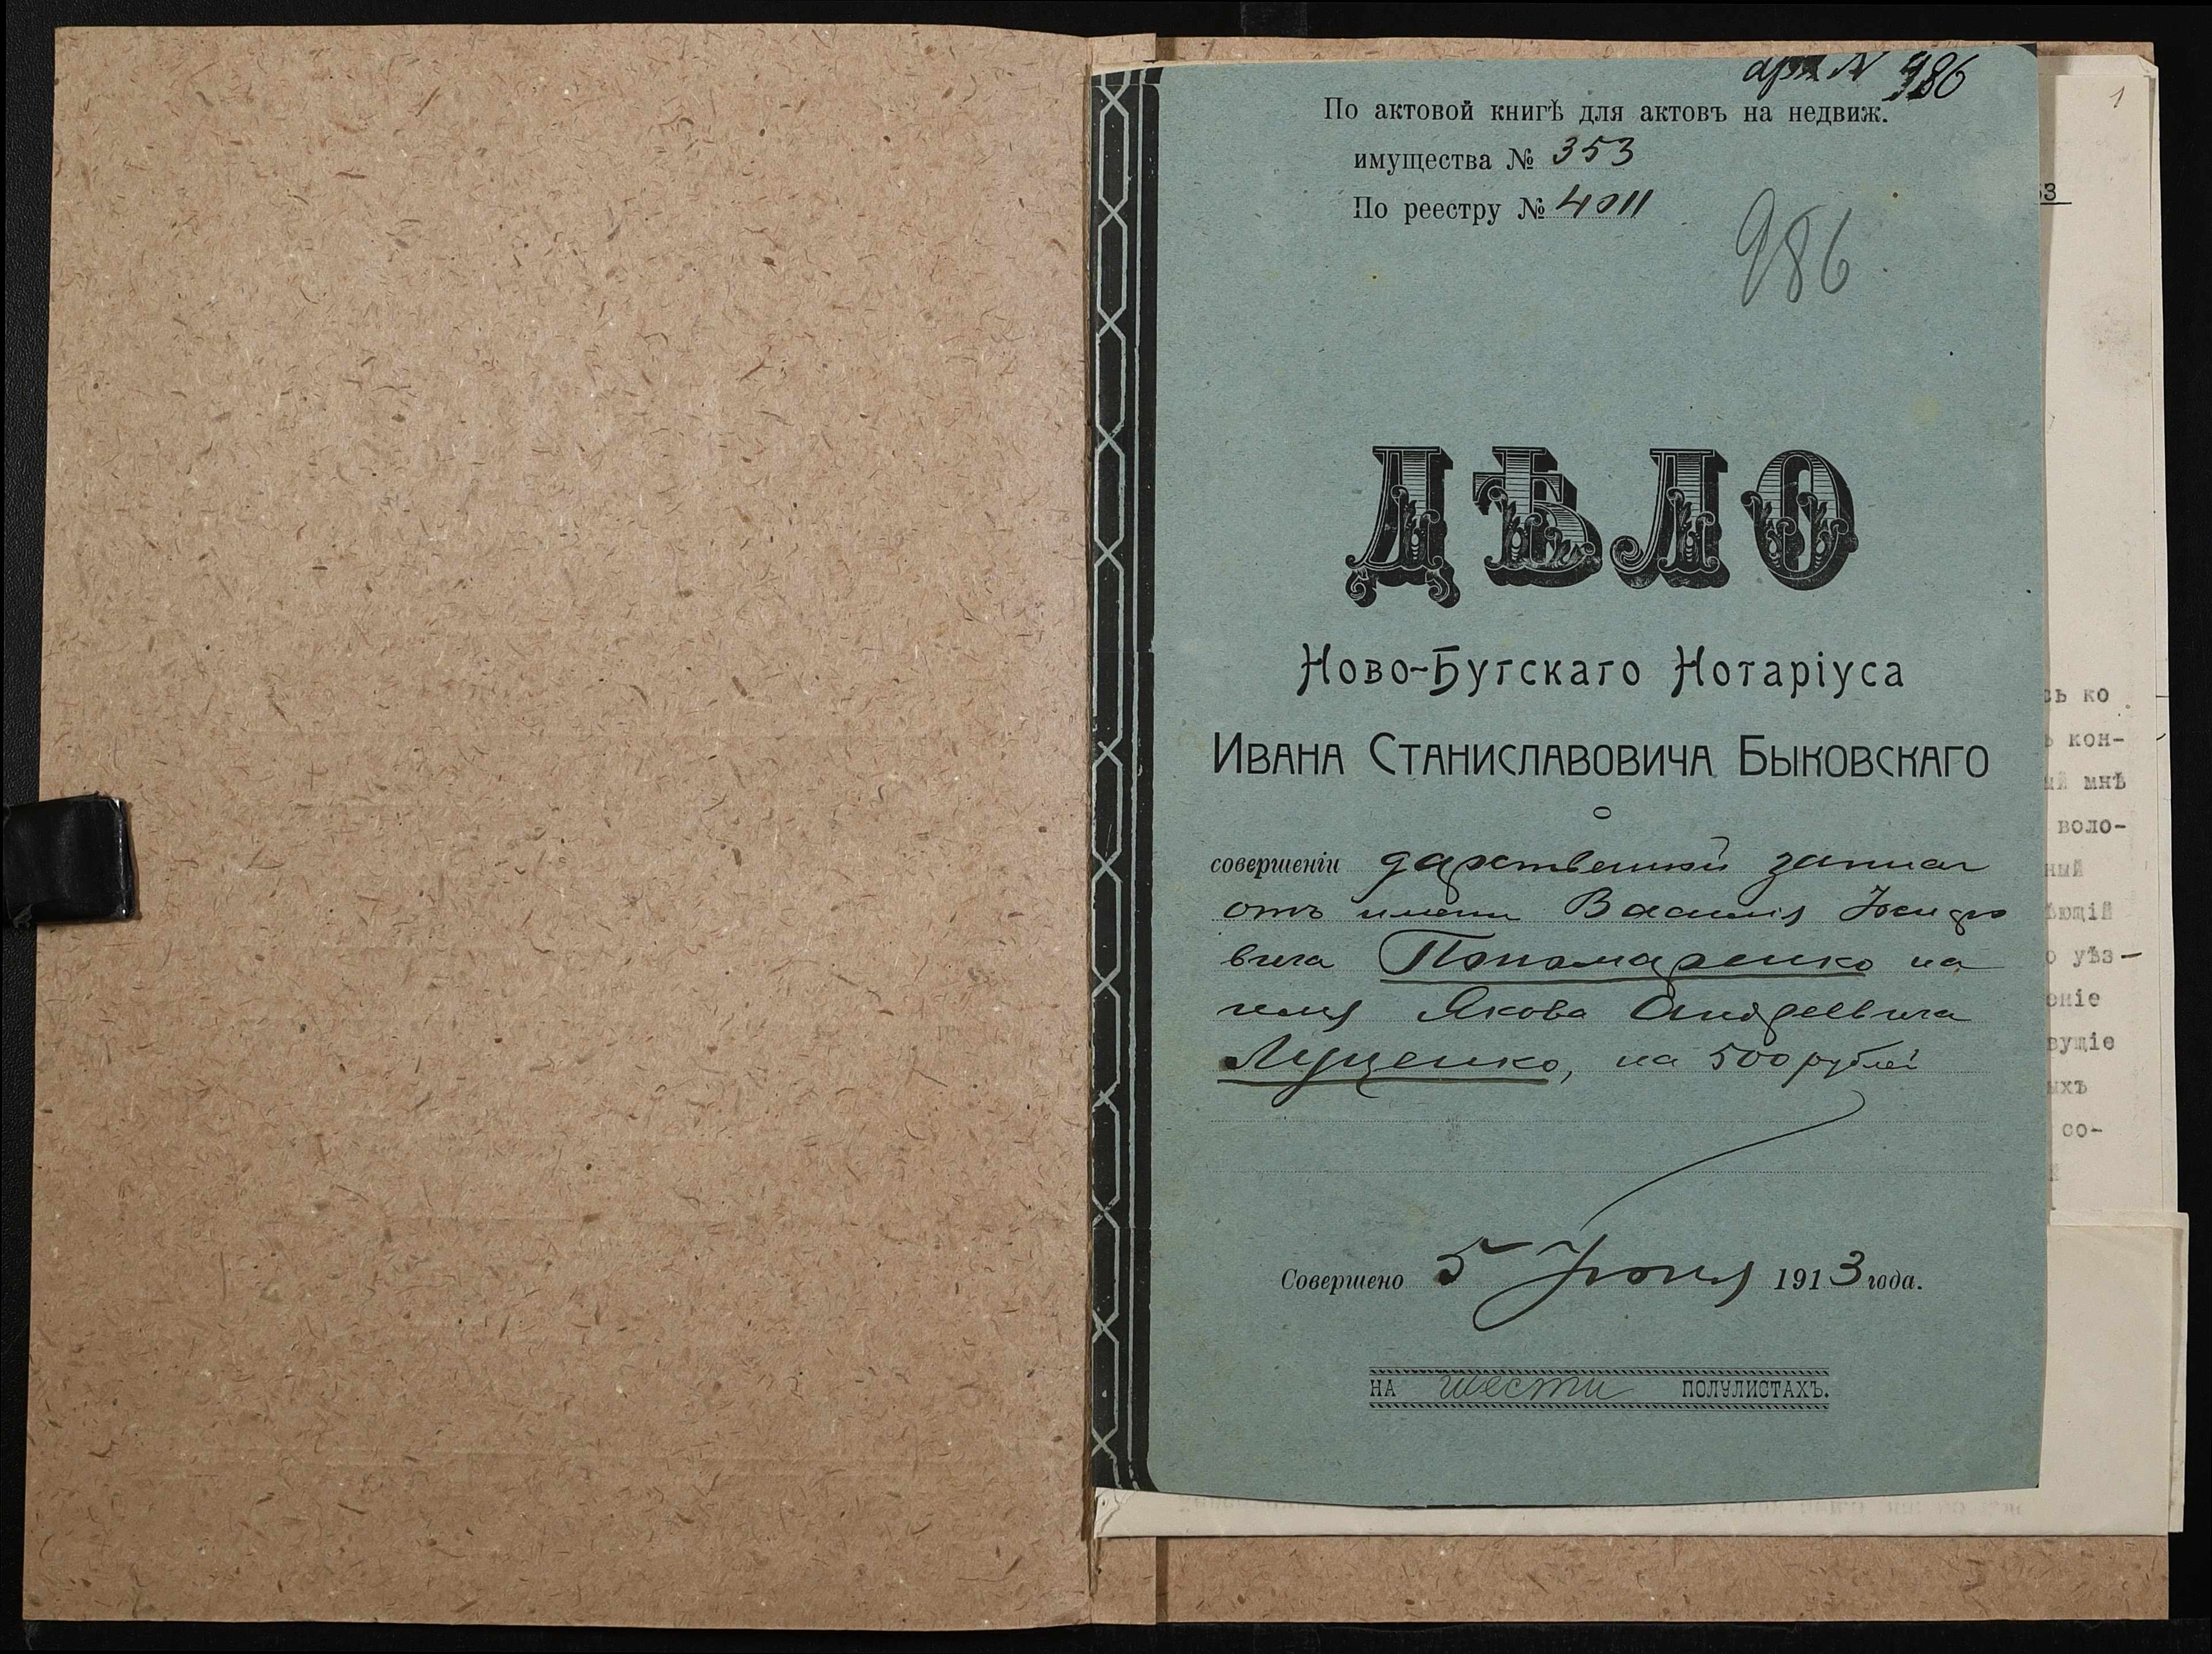 арх № 986
По актовой книгѣ для актовъ на недвиж.
имущества № 353
По реестру № 4011
986
1
53
ДѢЛО
Ново-Бугскаго Нотаріуса
Ивана Станиславовича Быковскаго
о
совершеніи дарственной записи
отъ имени Василія
вича Пономаренко на
имя Якова Андреевича
Луценко, на 500 рублей
Совершено 5 Іюня 1913 года.
на шести полулистахъ.
ко
кон-
мнѣ
воло-
ный
ющій
уѣз-
оніе
вущіе
ыхъ
со-